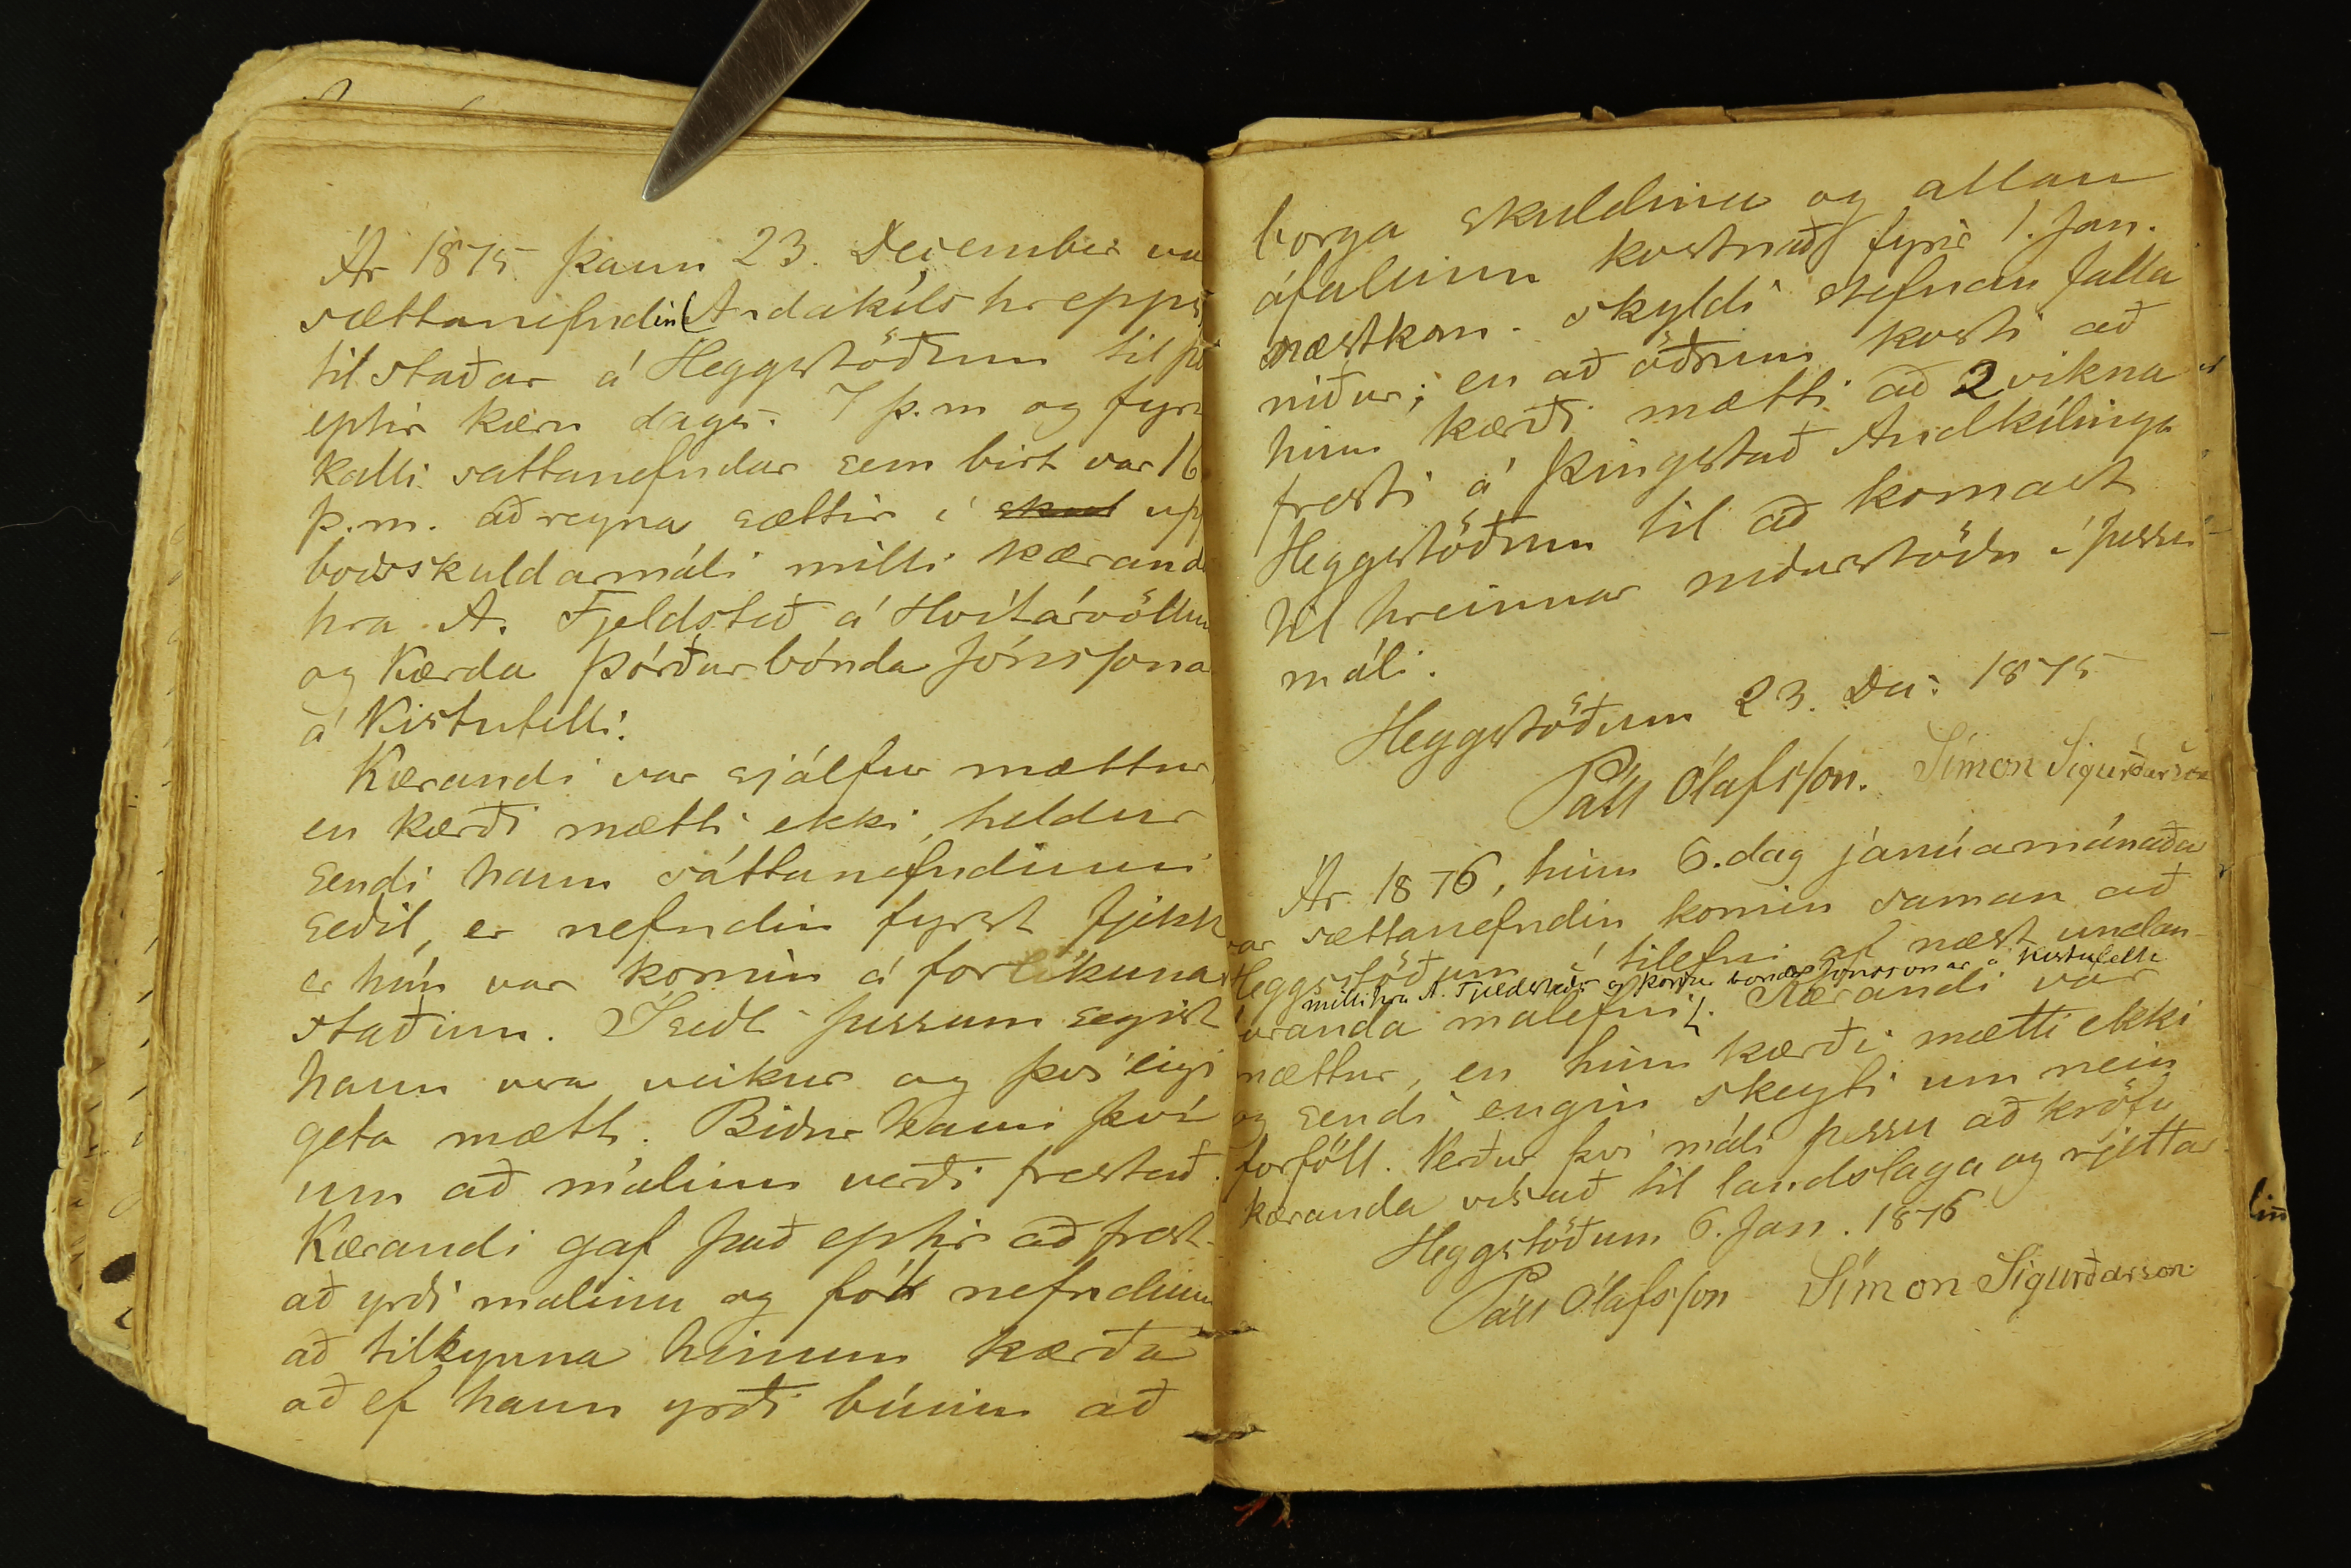 Ár 1875 þann 23. December va
sættanefndin Andakíls hreppi
til staðar á Heggstöðum til þe
eptir kæru dags. 7 þ.m og fyr
kalli sattanefndar sem birt var 16
þ.m. að reyna sættir í skul up
boðsskuldarmáli milli kærand
hra A. Fjeldsteð á Hvítárvöllum
og Kærda Þórðar bónda Jónssona
á Kistufelli.
Kærandi var sjálfur mættur
en kærði mætti ekki, heldur
sendi hann sáttanefndinni
seðil, er nefndin fyrst fjekk
er hún var komin á forlíkuna
staðinn. I seðli þessum segist
hann vera veikur og því eigi
geta mætt. Biður hann því
um að málinu verði frestað.
Kærandi gaf það eptir að frest-
að yrði malinu og fól nefndinni
að tilkynna hinum kærða
að ef hann yrði búinn að
borga skuldina og allan
áfallinn kostnað fyrir 1. Jan.
næstkom. skyldi stefnan falla
niður; en að öðrum kosti að
hinn kærði mætti að 2 vikna
fresti á þingstað Andkílinga
Heggstöðum til að komast
til hreinnar niðurstöðu í þessu
máli.
Heggstöðum 23. Des. 1875
Páll Ólafsson. Símon Sigurðarson
Ár 1876, hinn 6. dag janúarmánaða
var sættanefndin komin saman að
Heggsstöðum í tilefni af næst undan-
milli hra A. Fjeldsteðs og Þórðar bónda Jónssonar á Kistufelli
faranda malefni. Kærandi var
mættur, en hinn kærði mætti ekki
og sendi engin skeyti um nein
forföll. Verður því máli þessu að kröfu
kæranda vísað til landslaga og rjettar.
Heggstöðum 6. Jan. 1876
Páll Ólafsson Símon Sigurðarson.
lin